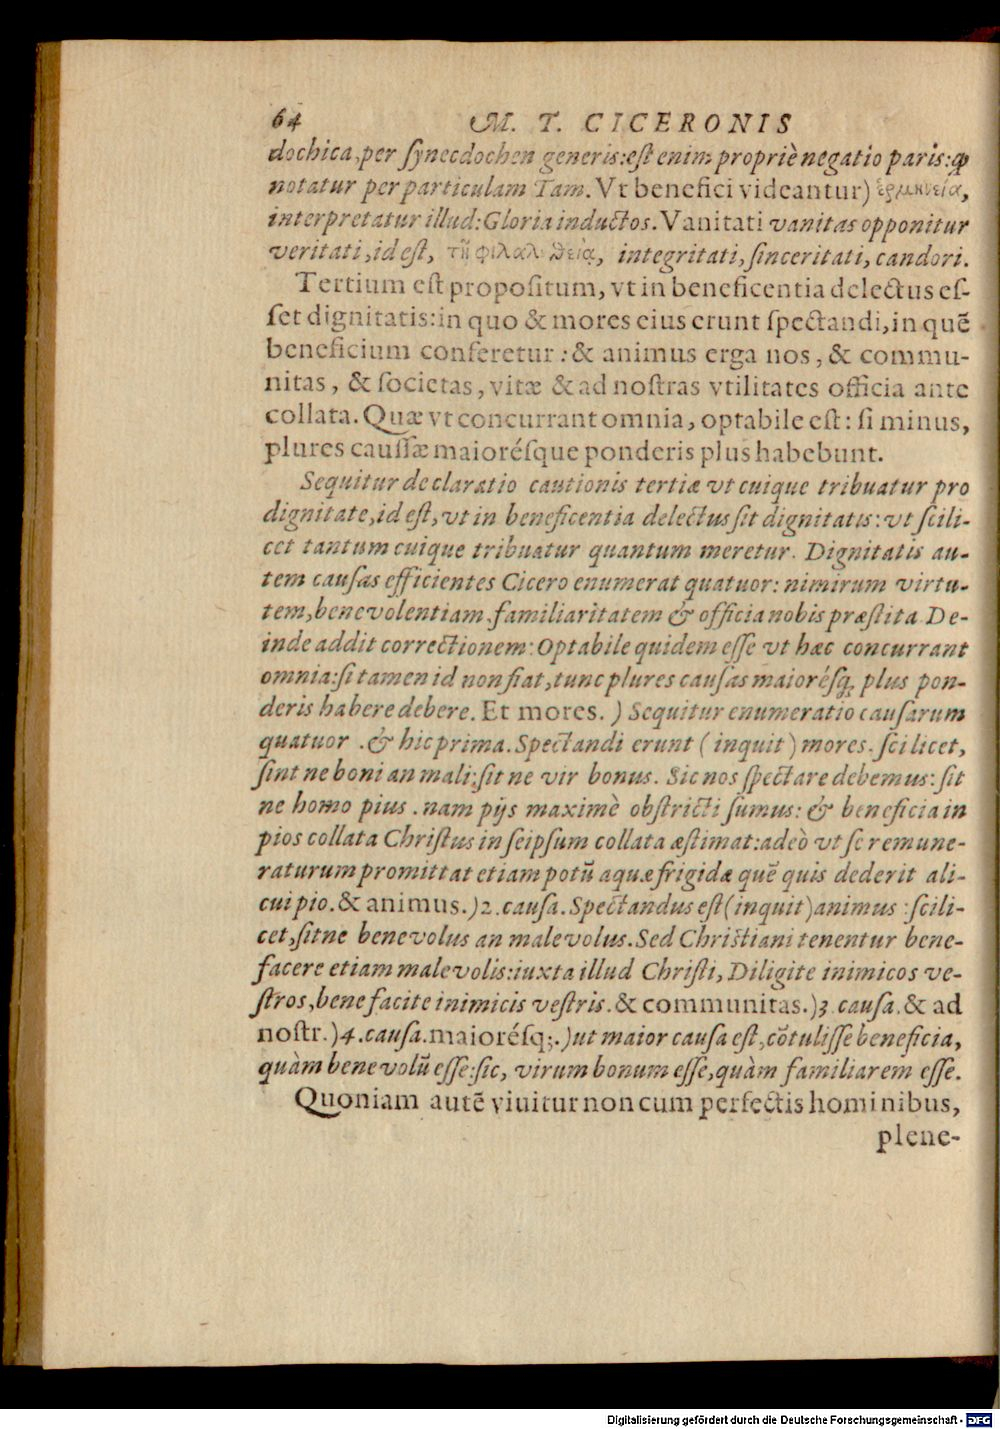 64 M. T. CICERONIS
dochica, per ſynecdochen generis: eſt enim propriè negatio paris: ꝙ
notatur per particulam Tam. Vt benefici videantur) ἑρμηνεία,
interpretatur illud: Gloria inductos. Vanitati vanitas opponitur
veritati, id eſt, τῇ φιλαληθείᾳ, integritati, ſinceritati, candori.
Tertium eſt propoſitum, vt in beneficentia delectus eſ-
ſet dignitatis: in quo & mores eius erunt ſpectandi, in quẽ
beneficium conferetur: & animus erga nos, & commu-
nitas, & ſocietas, vitæ & ad noſtras vtilitates officia ante
collata. Quæ vt concurrant omnia, optabile eſt: ſi minus,
plures cauſſæ maioréſque ponderis plus habebunt.
Sequitur declaratio cautionis tertiæ vt cuique tribuatur pro
dignitate, id eſt, vt in beneficentia delectus ſit dignitatis: vt ſcili-
cet tantum cuique tribuatur quantum meretur. Dignitatis au-
tem cauſas efficientes Cicero enumerat quatuor: nimirum virtu-
tem, benevolentiam, familiaritatem & officia nobis præſtita De-
inde addit correctionem: Optabile quidem eſſe vt hæc concurrant
omnia: ſi tamen id non fiat, tunc plures cauſas maioréſq; plus pon-
deris habere debere. Et mores.) Sequitur enumeratio cauſarum
quatuor. & hic prima. Spectandi erunt (inquit) mores. ſcilicet,
ſint ne boni an mali: ſit ne vir bonus. Sic nos ſpectare debemus: ſit
ne homo pius. nam pijs maximè obſtricti ſumus: & beneficia in
pios collata Chriſtus in ſeipſum collata æſtimat: adeò vt ſe remune-
raturum promittat etiam potũ aquæ frigidæ quẽ quis dederit ali-
cui pio. & animus.) 2. cauſa. Spectandus eſt (inquit) animus: ſcili-
cet, ſitne benevolus an malevolus. Sed Chriſtiani tenentur bene-
facere etiam malevolis: iuxta illud Chriſti, Diligite inimicos ve-
ſtros, benefacite inimicis veſtris. & communitas.) 3. cauſa. & ad
noſtr.) 4. cauſa. maioréſq;.) ut maior cauſa eſt, cõtuliſſe beneficia,
quàm benevolũ eſſe: ſic, virum bonum eſſe, quàm familiarem eſſe.
Quoniam autẽ viuitur non cum perfectis hominibus,
plene-
Digitalisierung gefördert durch die Deutsche Forschungsgemeinschaft - DFG